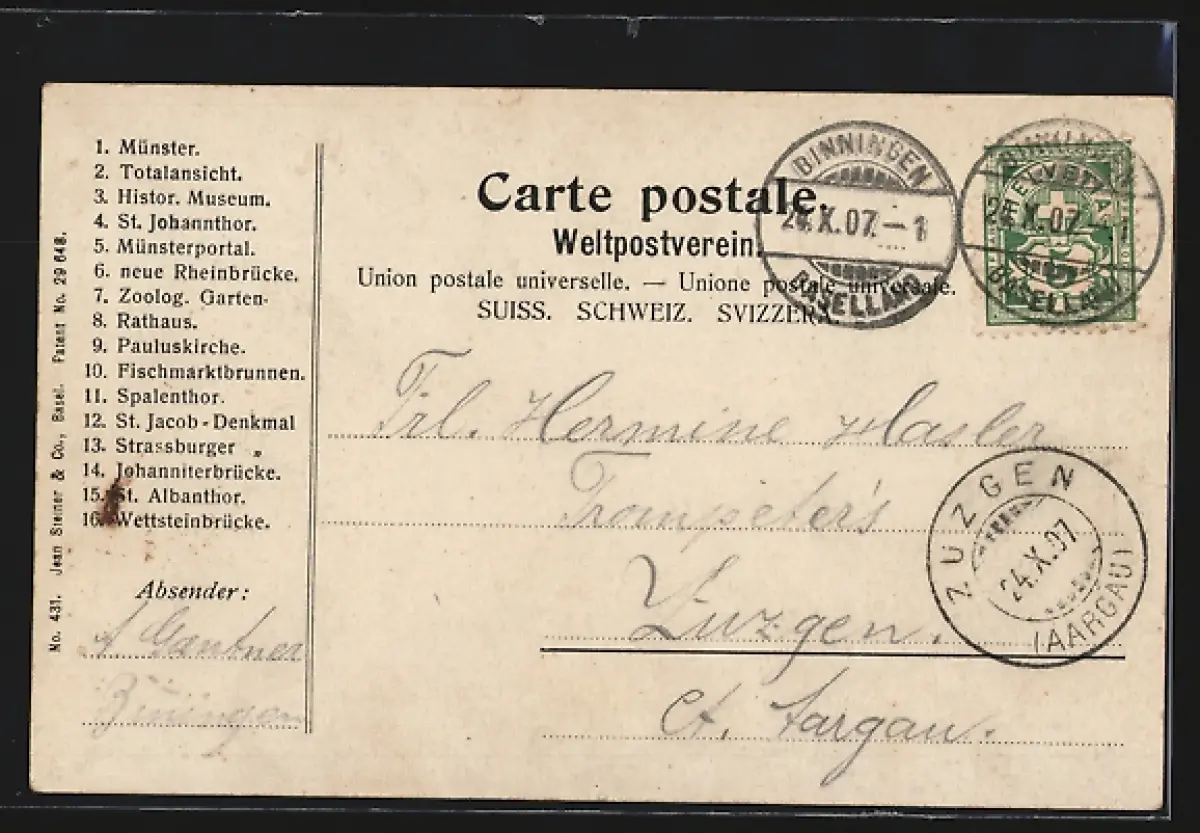 1. Münster.
2. Totalansicht.
3. Histor. Museum.
4. St. Johannthor.
5. Münsterportal.
6. neue Rheinbrücke.
7. Zoolog. Garten.
8. Rathaus.
9. Pauluskirche.
10. Fischmarktbrunnen.
11. Spalenthor.
12. St. Jacob-Denkmal
13. Strassburger „
14. Johanniterbrücke.
15. St. Albanthor.
16. Wettsteinbrücke.
No. 431. Jean Steiner & Co., Basel. Patent No. 29 648.
Absender:
A Gantner
Carte postale.
Weltpostverein.
Union postale universelle. — Unione postale universale.
SUISS. SCHWEIZ. SVIZZERA.
BINNINGEN
24.X.07.–1
BASELLAND
BINNINGEN
24.X.07.–1
BASELLAND
HELVETIA
Frl. Hermine Hasler
Trompeter's
Zuzgen.
Ct. Aargau.
ZUZGEN
24.X.07
(AARGAU)